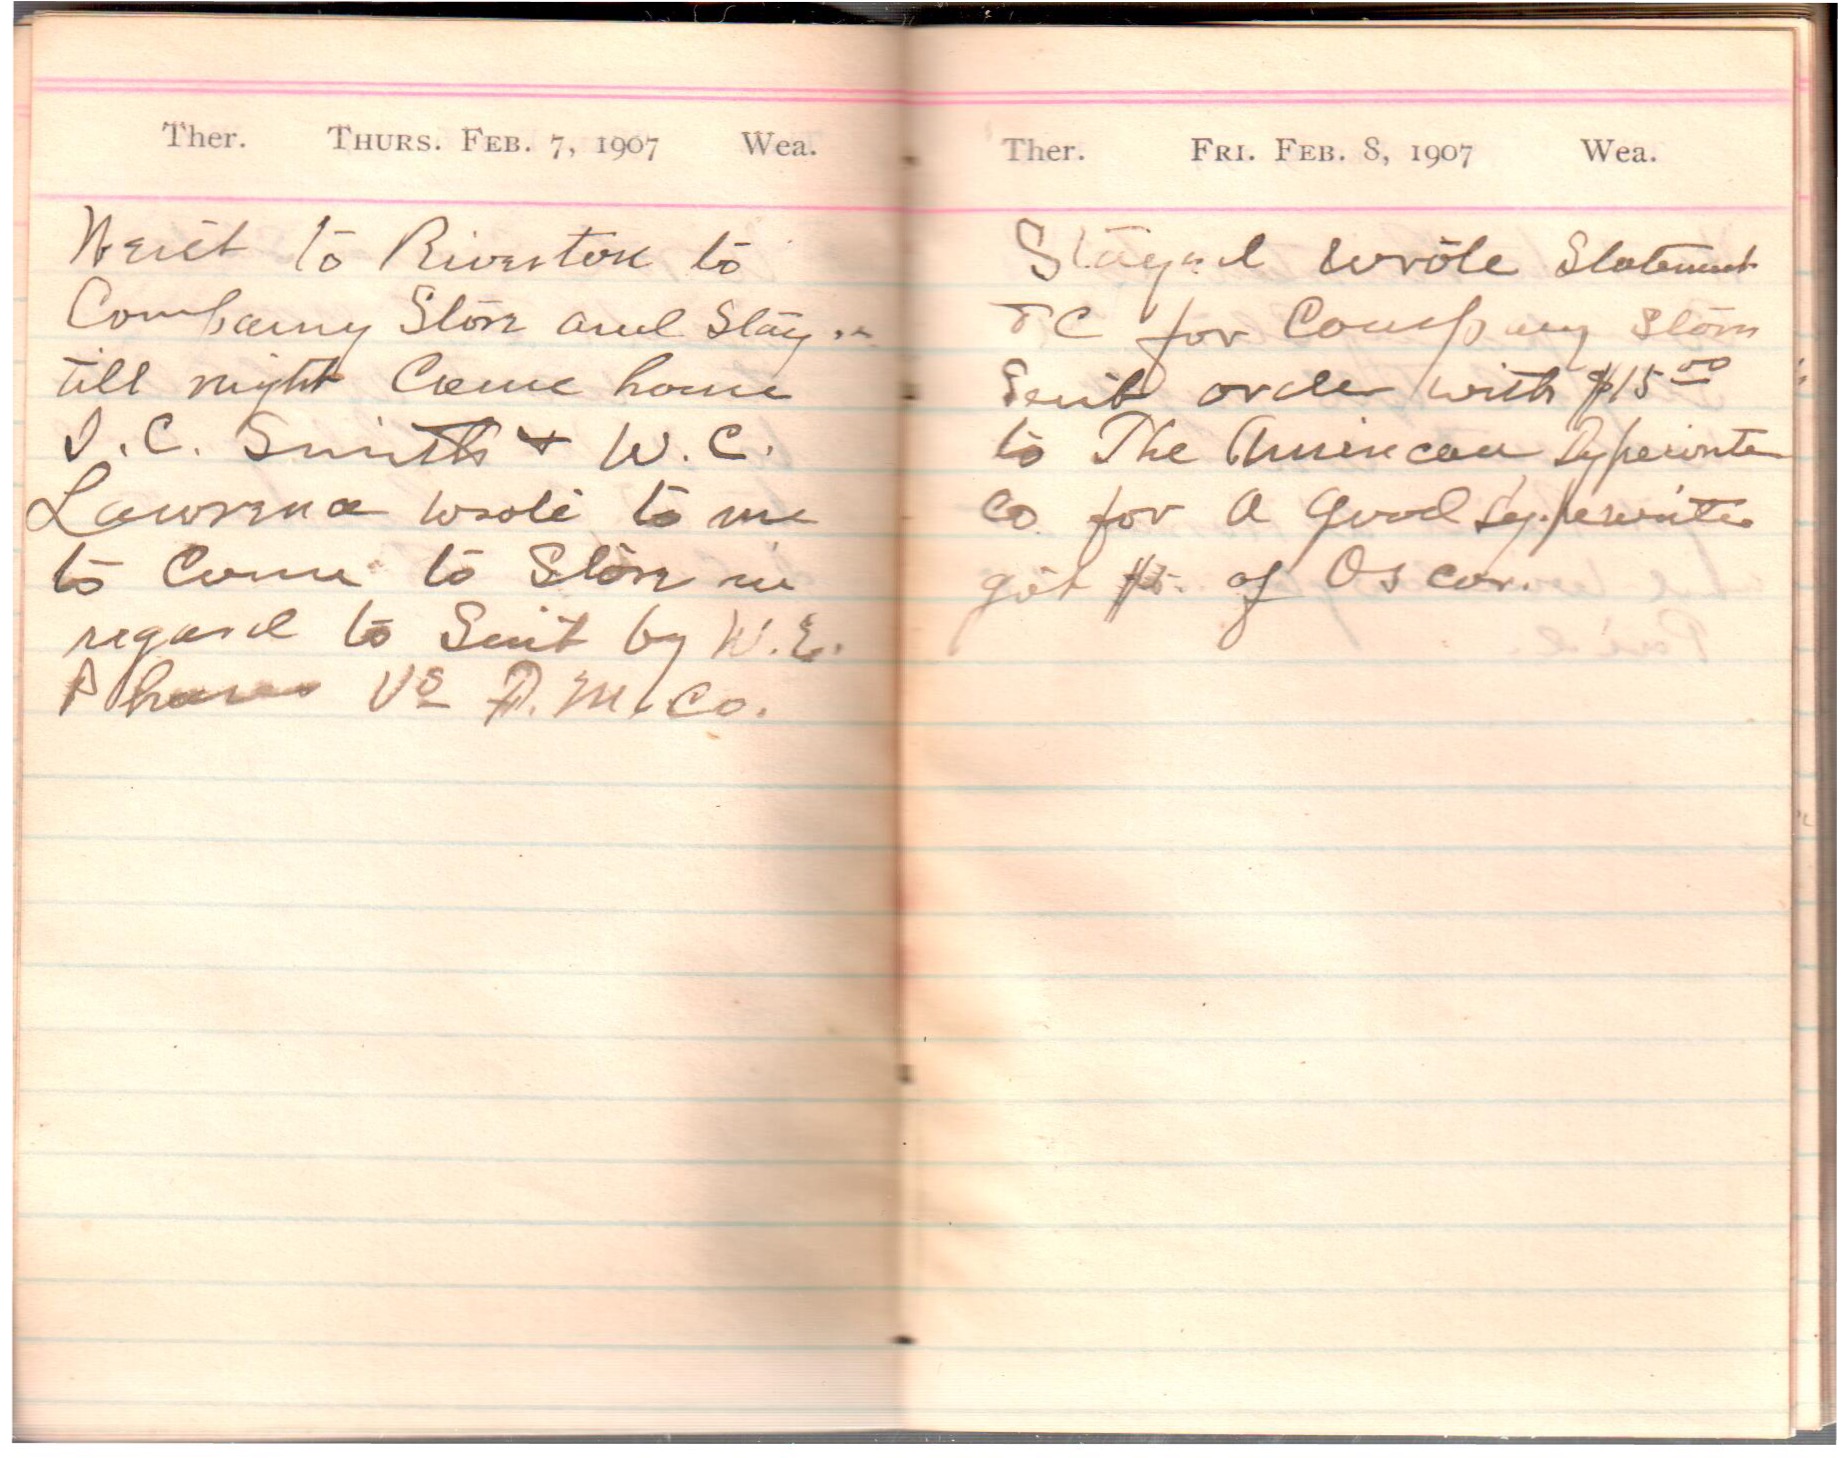 Ther. THURS. FEB. 7, 1907 Wea.
Went to Riverton to
Company Store and Stay
till night Came home
I. C. Smith & W. C.
Lawrence wrote to me
to Come to Store in
regard to Suit by W. E.
Phares Vs D. M. Co.
Ther. FRI. FEB. 8, 1907 Wea.
Stayed wrote Statement
for Company Store
Sent order with $15 00
to The American Typewriter
Co. for a good typewriter
got of Oscar.